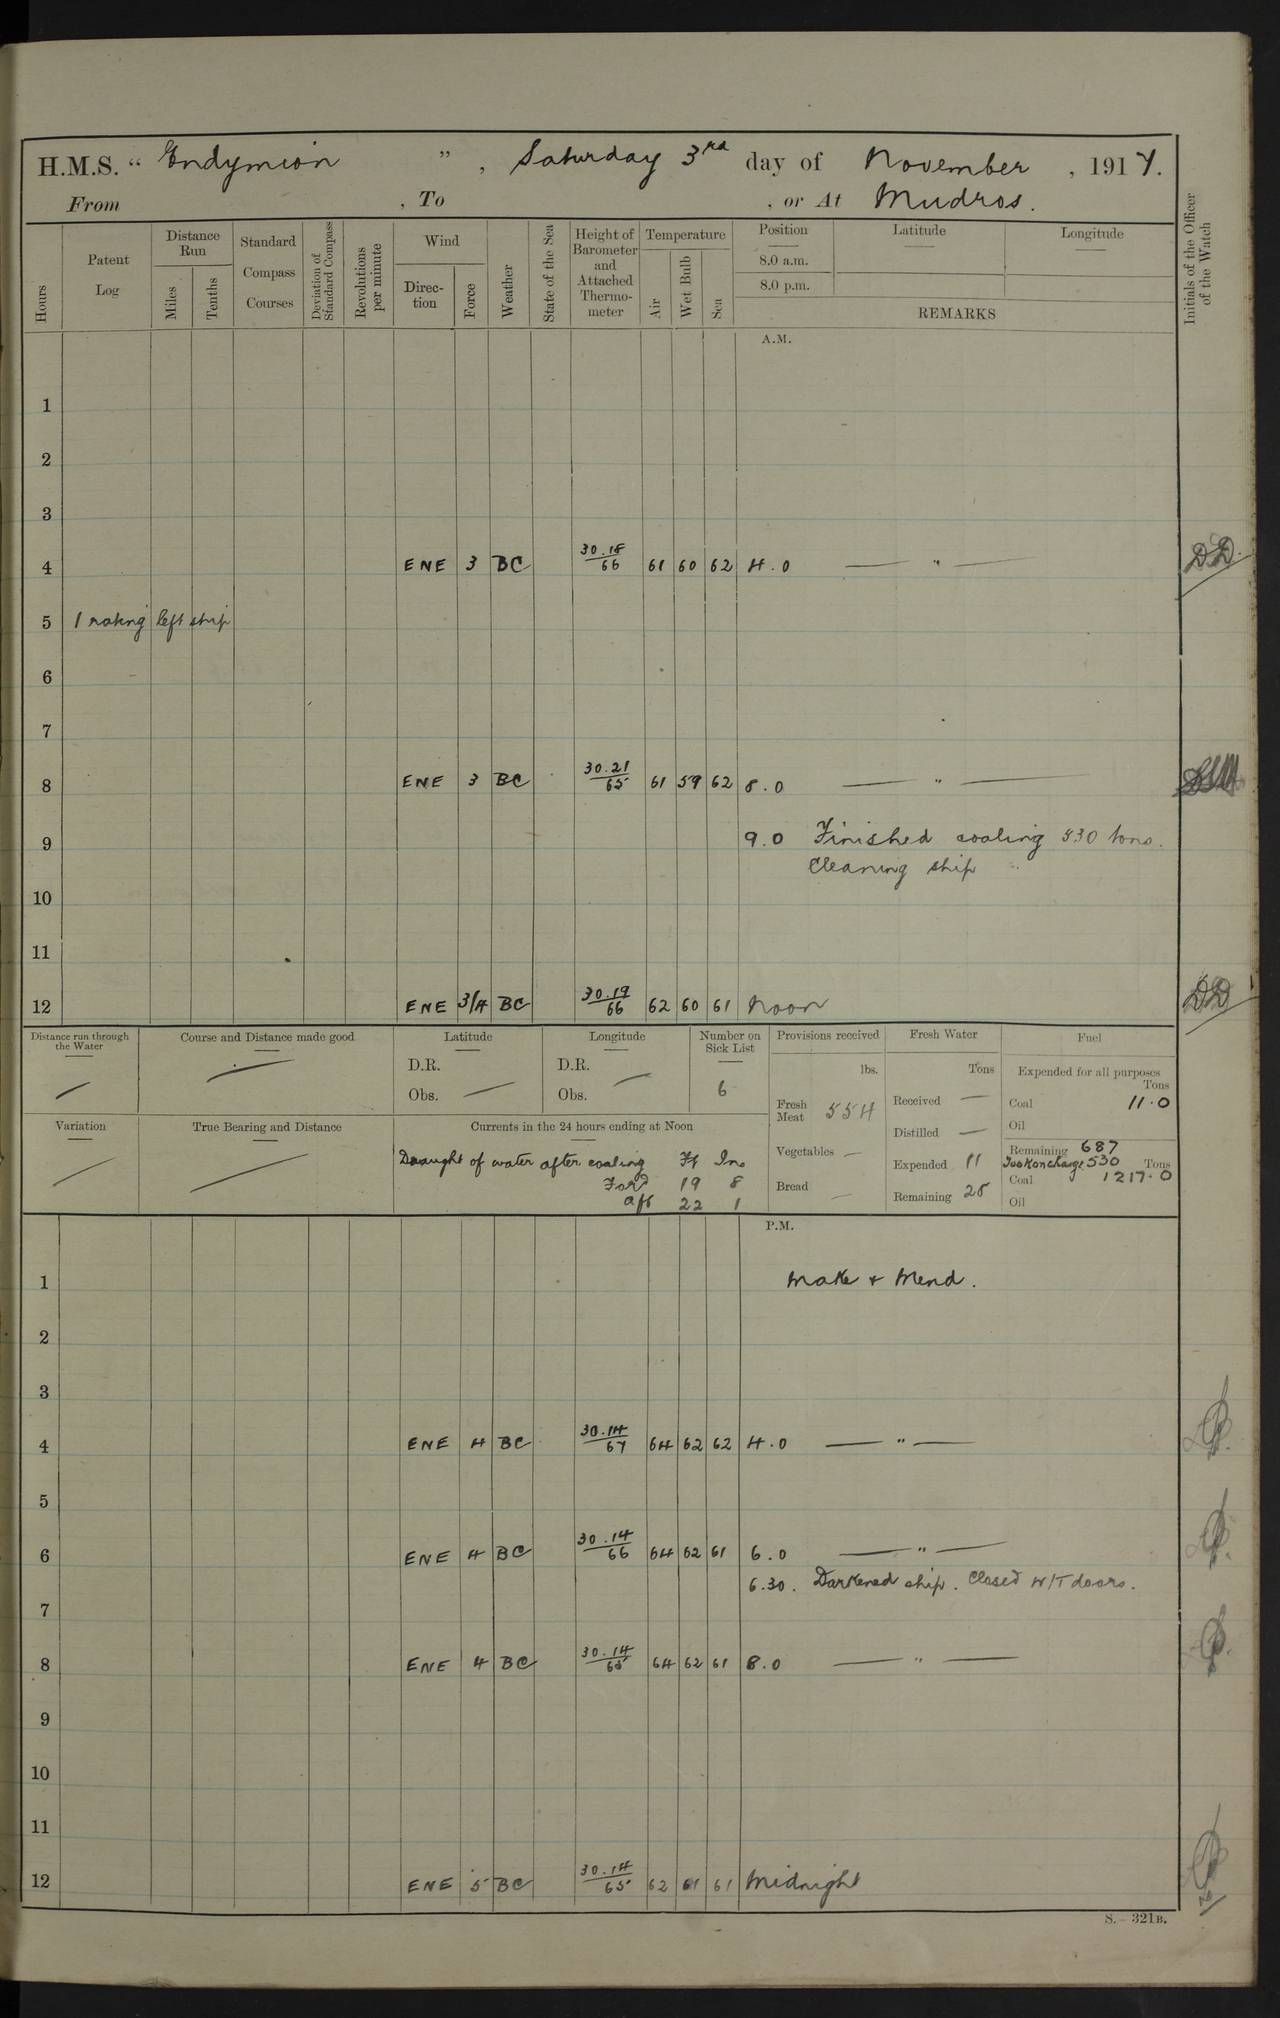 H.M.S. “ Endymion ” , Saturday 3rd day of November , 1917.
From , To , or At Mudros.
Hours
Patent Log
Distance Run
Miles
Tenths
Standard Compass Courses
Deviation of Standard Compass
Revolutions per minute
Wind
Direction
Force
Weather
State of the Sea
Height of Barometer and Attached Thermometer
Temperature
Air
Wet Bulb
Sea
Position
8.0 a.m.
8.0 p.m.
Latitude
Longitude
REMARKS
Initials of the Officer of the Watch
A.M.
1
2
3
4 ENE 3 BC 30.18/66 61 60 62 4.0 — " — DD.
5 1 rating left ship
6
7
8 ENE 3 BC 30.21/65 61 59 62 8.0 — " —
9 9.0 Finished coaling 530 tons.
Cleaning ship
10
11
12 ENE 3/4 BC 30.19/66 62 60 61 Noon DD
Distance run through the Water
Course and Distance made good
Latitude
D.R.
Obs. —
Longitude
D.R. —
Obs.
Number on Sick List
6
Provisions received
lbs.
Fresh Meat 554
Vegetables —
Bread —
Fresh Water
Tons
Received —
Distilled —
Expended 11
Remaining 28
Fuel
Expended for all purposes
Tons
Coal 11.0
Oil
Remaining 687
Took on charge 530 Tons
Coal 1217.0
Oil
Variation
True Bearing and Distance
Currents in the 24 hours ending at Noon
Draught of water after coaling Ft Ins
Ford 19 8
Aft 22 1
P.M.
1 Make & Mend.
2
3
4 ENE 4 BC 30.14/67 64 62 62 4.0 — " —
5
6 ENE 4 BC 30.14/66 64 62 61 6.0 — " —
6.30. Darkened ship. Closed W/T doors.
7
8 ENE 4 BC 30.14/65 64 62 61 8.0 — " —
9
10
11
12 ENE 5 BC 30.14/65 62 61 61 Midnight
S. – 321B.